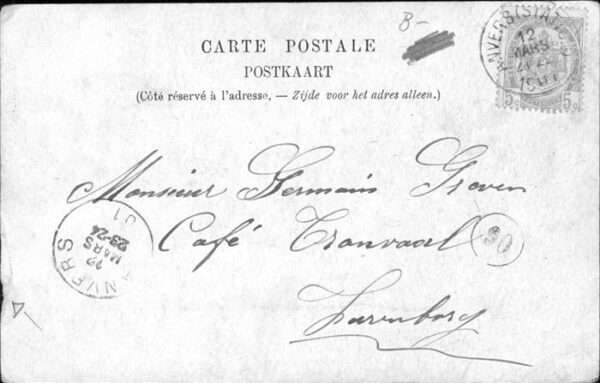 B-
CARTE POSTALE
POSTKAART
(Côté réservé à l'adresse. — Zijde voor het adres alleen.)
ANVERS (STA
12
MARS
1901
5c 5c
Monsieur Germain Greven
Café Tranvaal
Zurenborg
90
ANVERS
12
MARS
23-24
01